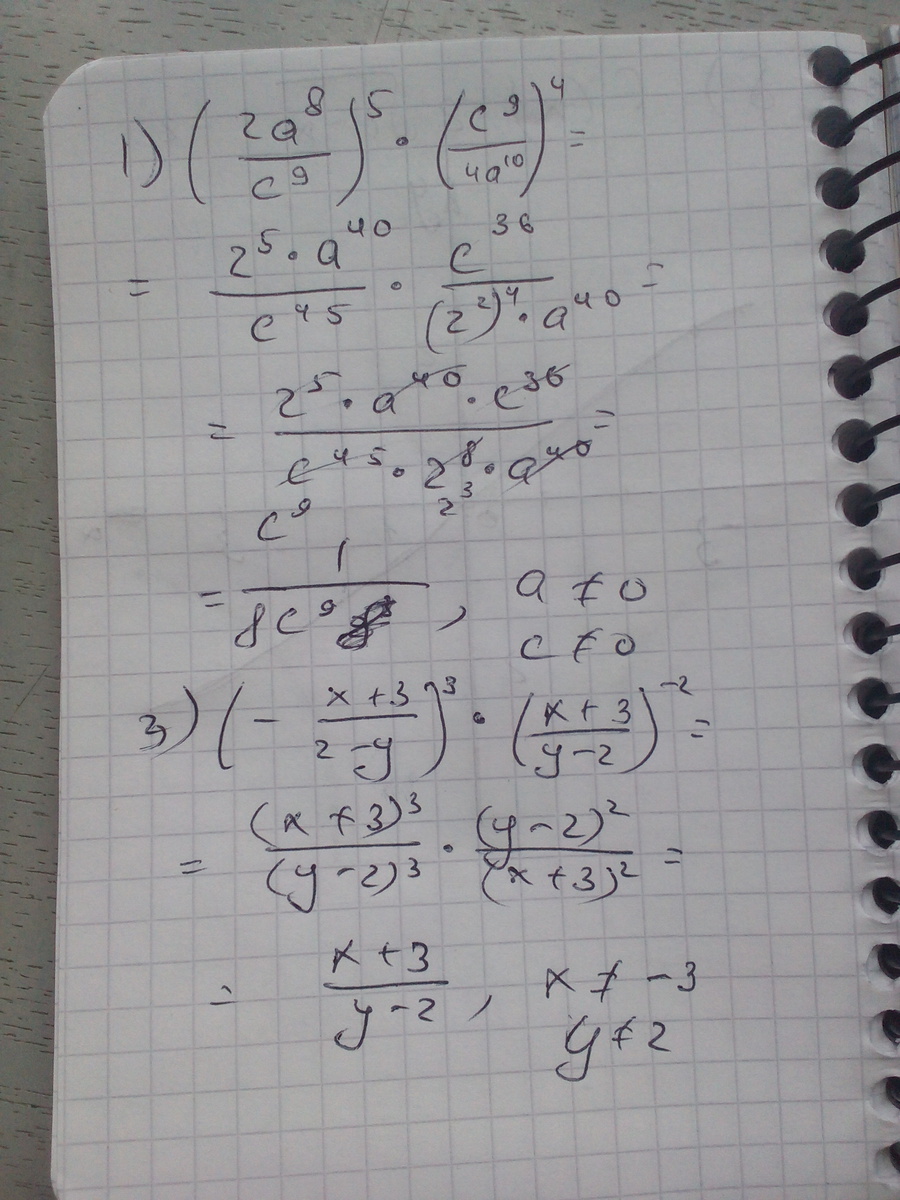 1) (2a⁸/c⁹)⁵ · (c⁹/4a¹⁰)⁴ =
= 2⁵·a⁴⁰/c⁴⁵ · c³⁶/(2²)⁴·a⁴⁰ =
= 2⁵·a⁴⁰·c³⁶/c⁴⁵·2⁸·a⁴⁰ =
c⁹ 2³
= 1/8c⁹ , a ≠ 0
c ≠ 0
3) (- x+3/2-y)³ · (x+3/y-2)⁻² =
= (x+3)³/(y-2)³ · (y-2)²/(x+3)² =
= x+3/y-2 , x ≠ -3
y ≠ 2